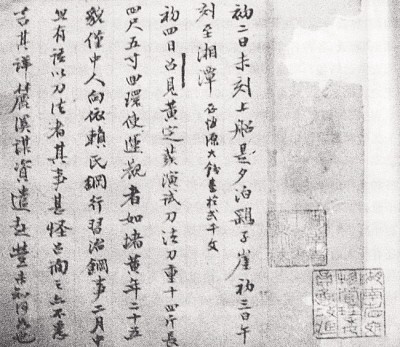 初二日未刻上船是夕泊鷂子崖初三日午
刻至湘潭 大錢 弍千文
初四日召見黃定義演試刀法刀重十四斤長
四尺五寸四環使運觀者如堵黃年二十五
貌僅中人向依賴氏鋼行習治鋼事二月中
有語以刀法者其事甚怪召問之亦不悉
言其詳 溪謀資遣赴豐未知何如也